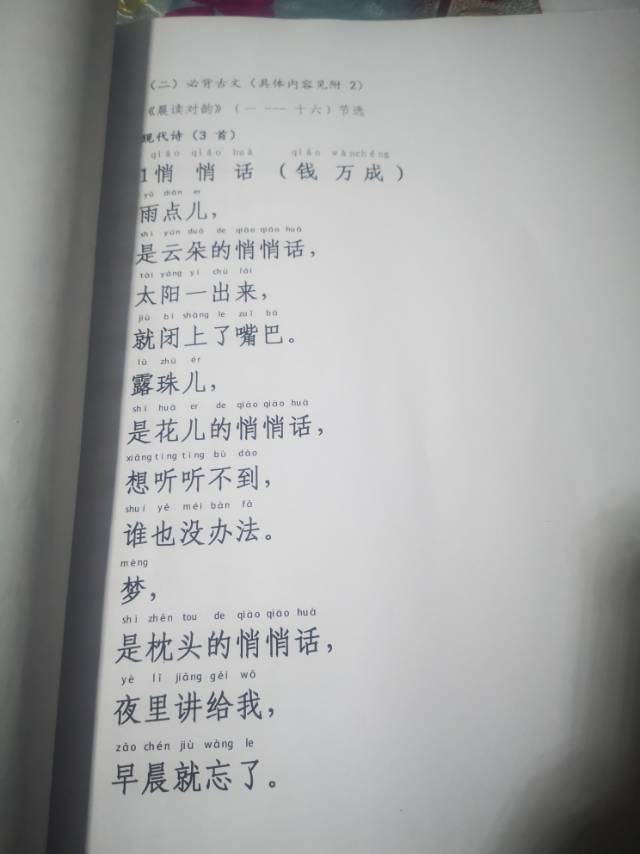 （二）必背古文（具体内容见附 2）
《晨读对韵》（一 --- 十六）节选
现代诗（3 首）
qiāo qiāo huà qián wànchéng
1悄 悄 话 （钱 万成）
yǔ diǎn er
雨点儿，
shì yún duǒ de qiāo qiāo huà
是云朵的悄悄话，
tài yáng yì chū lái
太阳一出来，
jiù bì shàng le zuǐ bā
就闭上了嘴巴。
lù zhū ér
露珠儿，
shì huā er de qiāo qiāo huà
是花儿的悄悄话，
xiǎng tīng tīng bù dào
想听听不到，
shuí yě méi bàn fǎ
谁也没办法。
mèng
梦，
shì zhěn tou de qiāo qiāo huà
是枕头的悄悄话，
yè lǐ jiǎng gěi wǒ
夜里讲给我，
zǎo chén jiù wàng le
早晨就忘了。